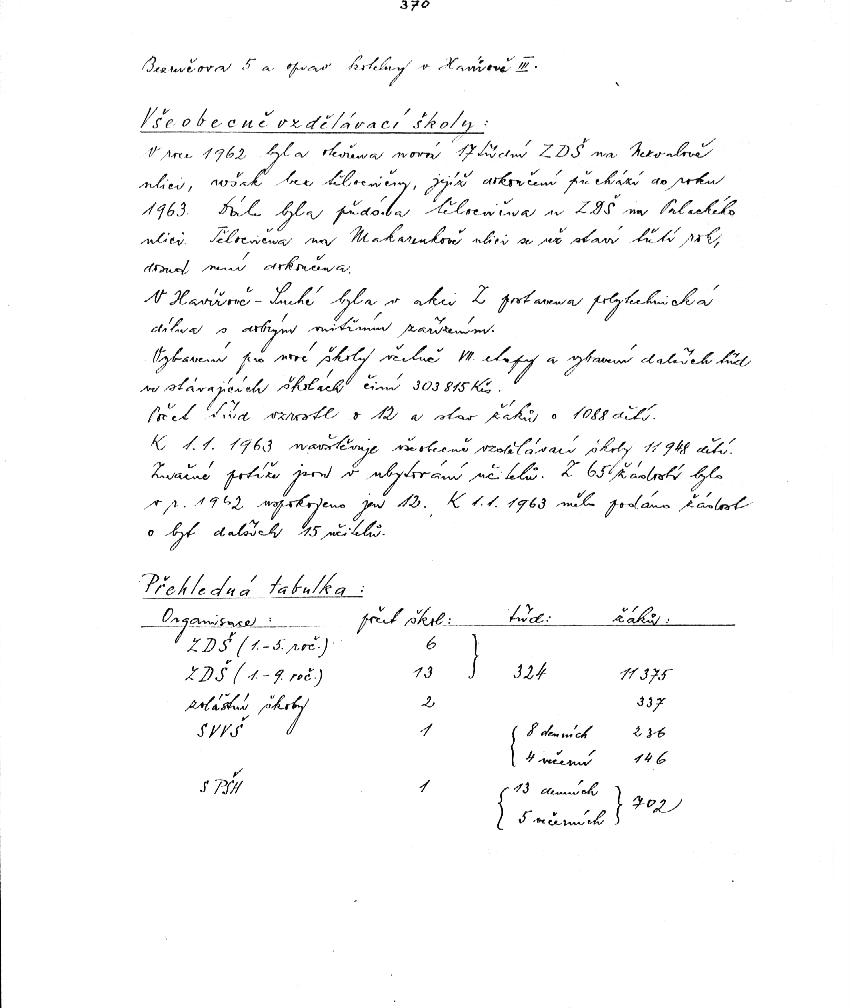 370
Bezručova 5 a oprav kotelny v Havířově III.
Všeobecně vzdělávací školy:
V roce 1962 byla otevřena nová 17třídní ZDŠ na Nezvalově
ulici, však bez tělocvičny, jejíž dokončení přechází do roku
1963. Dále byla předána tělocvična u ZDŠ na Palackého
ulici. Tělocvična na Makarenkově ulici se už staví třetí rok,
dosud není dokončena.
V Havířově-Suché byla v akci Z postavena polytechnická
dílna s dobrým vnitřním zařízením.
Vybavení pro nové školy včetně VII. etapy a vybavení dalších tříd
ve stávajících školách činí 303815 Kčs.
Počet tříd vzrostl o 12 a stav žáků o 1088 dětí.
K 1.1. 1963 navštěvuje všeobecně vzdělávací školy 11948 dětí.
Značné potíže jsou v ubytování učitelů. Z 65 žádostí bylo
v r. 1962 uspokojeno jen 12. K 1.1. 1963 mělo podáno žádost
o byt dalších 15 učitelů.
Přehledná tabulka:
Organisace: počet škol: tříd: žáků:
ZDŠ (1.-5. roč.) 6
ZDŠ (1.-9. roč.) 13 324 11375
zvláštní školy 2 337
SVVŠ 1 8 denních 236
4 večerní 146
SPŠH 1 13 denních 702
5 večerních